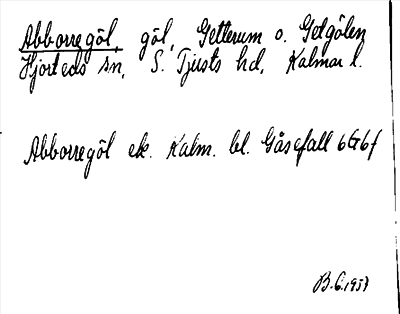 Abborregöl, göl, Getterum o. Getgölen
Hjorteds sn, S. Tjusts hd, Kalmar l.
Abborregöl ek. Kalm. bl. Gåsefall 6G6f
B.C. 1957